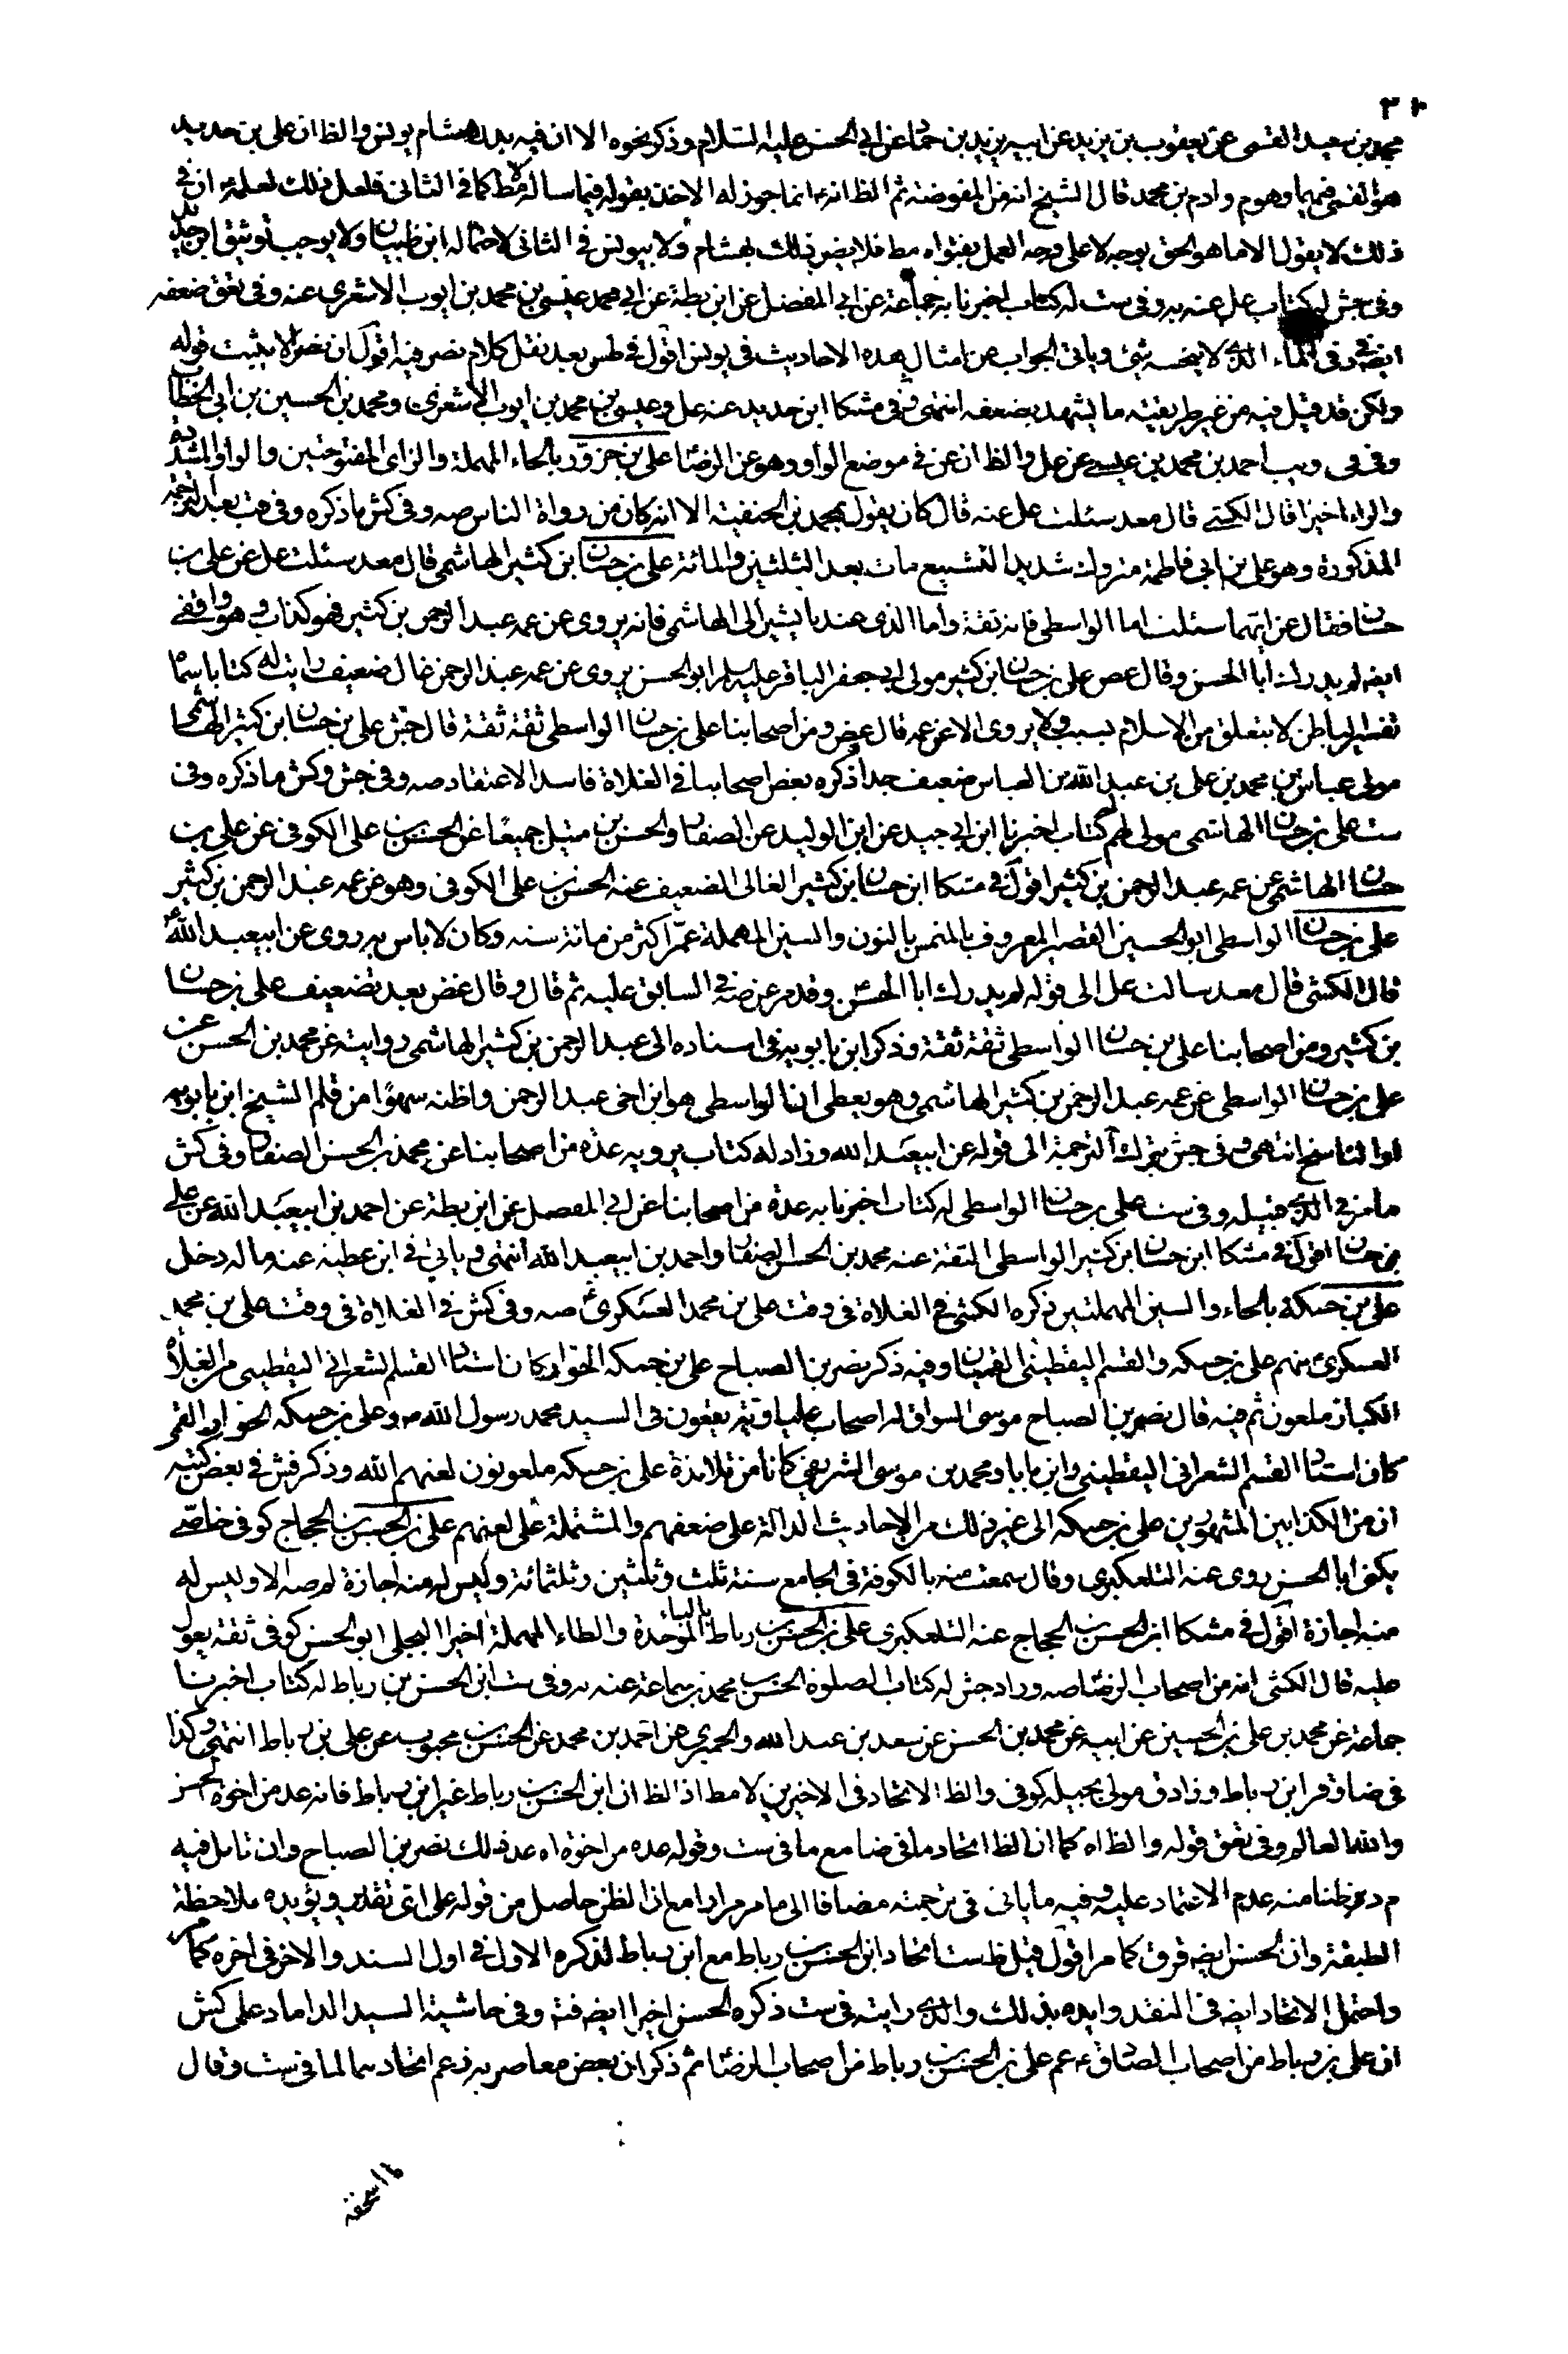 محمد بن سعيد القسمى عن يعقوب بن يزيد عن ابيه يزيد بن حماد عن ابى الحسن عليه السّلام وذكر نحوه الا ان فيه بدل هشام يونس والظ ان على بن حديد
هو القمى فيهما وهوم وادم بن محمد قال الشيخ انه من المفوضة ثم الظ انه انما جوز له الاخذ بقوله فيما ساله لا مط كما فى الثانى فلعل ذلك لعلمه ان فى
ذلك لا يقول الا ما هو الحق بوجه لا على وجه العمل بفتواه مط فلا يضر ذلك بهشام ولا بيونس فى الثانى لاحتماله ابن ظبيان ولا يوجب توثيق ابن حديد
وفى جش له كتاب عل عنه به وفى ست له كتاب اخبرنا به جماعة عن ابى المفضل عن ابن بطة عن ابى محمد عيسى بن محمد بن ايوب الاشعرى عنه وفى تعق ضعفه
ايضه فى الماء الذى لا ينجسه شئ وياتى الجواب عن امثال هذه الاحاديث فى يونس اقول فى طس بعد نقل كلام نصر فيه اقول ان نصرا لا يثبت قوله
ولكن قد قيل فيه من غير طريقته ما يشهد بضعفه انتهى وفى مشكا ابن حديد عنه على وعيسى بن محمد بن ايوب الاشعرى ومحمد بن الحسين بن ابى الخطاب
وفى فى ويب احمد بن محمد بن عيسى عن عل والظ ان عن فى موضع الواو وهو عن الرضا على بن حزوّر بالحاء المهملة والزاى المفتوحتين والواو المشددة
والراء اخيرا قال الكشى قال معد سئلت عل عنه قال كان يقول بمحمد بن الحنفية الا انه كان من رواة الناس صه وفى كش ما ذكره وفى قب بعد الترجمة
المذكورة وهو على بن ابى فاطمة متروك شديد التشيع مات بعد الثلثين والمائة على بن حسان ابن كثير الهاشمى قال معد سئلت عل عن على بن
حسان فقال عن ايهما سئلت اما الواسطى فانه ثقة واما الذى عندنا يشير الى الهاشمى فانه يروى عن عمه عبد الرحمن بن كثير فهو كذاب وهو واقفى
ايضه لم يدرك ابا الحسن وقال عض على بن حسان ابن كثير مولى ابى جعفر الباقر عليه سلم ابو الحسن يروى عن عمه عبد الرحمن غال ضعيف رايت له كتابا سماه
تفسير الباطن لا يتعلق من الاسلام بسبب ولا يروى الا عن عمه قال عض ومن اصحابنا على بن حسان الواسطى ثقة ثقة قال جش على بن حسان ابن كثير الهاشمى
مولى عباس بن محمد بن على بن عبد الله بن العباس ضعيف جدا ذكره بعض اصحابنا فى الغلاة فاسد الاعتقاد صه وفى جش وكش ما ذكره وفى
ست على بن حسان الهاشمى مولى لهم له كتاب اخبرنا ابن ابى جيد عن ابن الوليد عن الصفار والحسن بن متيل جميعًا عن الحسن بن على الكوفى عن على بن
حسان الهاشمى عن عمه عبد الرحمن بن كثير اقول فى مشكا ابن حسان ابن كثير الغالى الضعيف عنه الحسن بن على الكوفى وهو عن عمه عبد الرحمن بن كثير
على بن حسان الواسطى ابو الحسين القصير المعروف بالمنمس بالنون والسين المهملة عمّر اكثر من مائة سنه وكان لا باس به روى عن ابيعبد الله ع
قال الكشى قال معد سالت عل الى قوله لم يدرك ابا الحسن وقد مر عن صه فى السابق عليه ثم قال وقال غض بعد تضعيف على بن حسان
بن كثير ومن اصحابنا على بن حسان الواسطى ثقة ثقة وذكر ابن بابويه فى اسناده الى عبد الرحمن بن كثير الهاشمى روايته عن محمد بن الحسن عن
على بن حسان الواسطى عن عمه عبد الرحمن بن كثير الهاشمى وهو يعطى ان الواسطى هو ابن اخى عبد الرحمن واظنه سهوًا من قلم الشيخ ابن بابويه
او الناسخ انتهى وفى جش بترك الترجمة الى قوله عن ابيعبد الله وزاد له كتاب يرويه عدة من اصحابنا عن محمد بن الحسن الصفار وفى كش
ما مر فى الذى قبيله وفى ست على بن حسان الواسطى له كتاب اخبرنا به عدة من اصحابنا عن ابى المفصل عن ابن بطة عن احمد بن ابيعبد الله عن على
بن حسان اقول فى مشكا ابن حسان ابن كثير الواسطى الثقة عنه محمد بن الحسن الصفار واحمد بن ابيعبد الله انتهى وياتى فى ابن عطيه عنه ماله دخل
على بن حسكة بالحاء والسين المهملتين ذكره الكشى فى الغلاة فى وقت على بن محمد العسكرى ع صه وفى كش فى الغلاة فى وقت على بن محمد
العسكرى منهم على بن حسكه والقسم اليقطينى القميان وفيه ذكر نصر بن الصباح على بن حسكه الحوار كان استاد القسم الشعرانى اليقطينى من الغلاة
الكبار ملعون ثم فيه قال نصر بن الصباح موسى السواق له اصحاب علياوية يقعون فى السيد محمد رسول الله ص وعلى بن حسكه الحوار القمى
كان استاد القسم الشعرانى اليقطينى وابن بابا ومحمد بن موسى الشريقى كانا من تلامذة على بن حسكه ملعونون لعنهم الله وذكر فش فى بعض كتبه
ان من الكذابين المشهورين على بن حسكه الى غير ذلك من الاحاديث الدالة على ضعفهم والمشتملة على لعنهم على بن الحسن بن الحجاج كوفى خاصى
يكنى ابا الحسن روى عنه التلعكبرى وقال سمعت منه بالكوفة فى الجامع سنة ثلث وثلثين وثلثمائة وليس له منه اجازة لم صه الا وليس له
منه اجازة اقول فى مشكا ابن الحسن بن الحجاج عنه التلعكبرى على بن الحسن بن رباط بالباء الموحدة والطاء المهملة اخيرا البجلى ابو الحسن كوفى ثقة يعول
عليه قال الكشى انه من اصحاب الرضا صه وزاد جش له كتاب الصلوة الحسن بن محمد بن سماعة عنه به وفى ست ابن الحسن بن رباط له كتاب اخبرنا
جماعة عن محمد بن على بن الحسين عن ابيه عن محمد بن الحسن عن سعد بن عبد الله والحميرى عن احمد بن محمد عن الحسن بن محبوب عن على بن رباط انتهى وكذا
فى ضا وقر ابن رباط وزاد ق مولى بجيله كوفى والظ الاتحاد فى الاخيرين لا مط اذ الظ ان ابن الحسن بن رباط غير ابن رباط فانه عد من اخوة الحسن
والله العالم وفى تعق قوله والظ اه كما ان الظ اتحاد ما فى ضا مع ما فى ست وقوله عده من اخوة اه عد ذلك نصر بن الصباح وان تامل فيه
م د ع ظنا منه عدم الاعتماد عليه وفيه ما ياتى فى ترجمته مضافا الى ما مر مرارا مع ان الظن حاصل من قوله على اى تقدير ويؤيده ملاحظة
الطبقة وان الحسن ايضه فى ق كما مر اقول قيل ظ ست اتحاد ابن الحسن بن رباط مع ابن رباط لذكره الاول فى اول السند والاخر فى اخره كما مر
واحتمل الاتحاد ايضه فى النقد وايده بذلك والذى رايته فى ست ذكره الحسن اخيرا ايضه فتد وفى حاشية السيد الداماد على كش
ان على بن رباط من اصحاب الصادق ع عم على بن الحسن بن رباط من اصحاب الرضا ثم ذكر ان بعض معاصريه زعم اتحادهما لما فى ست وقال